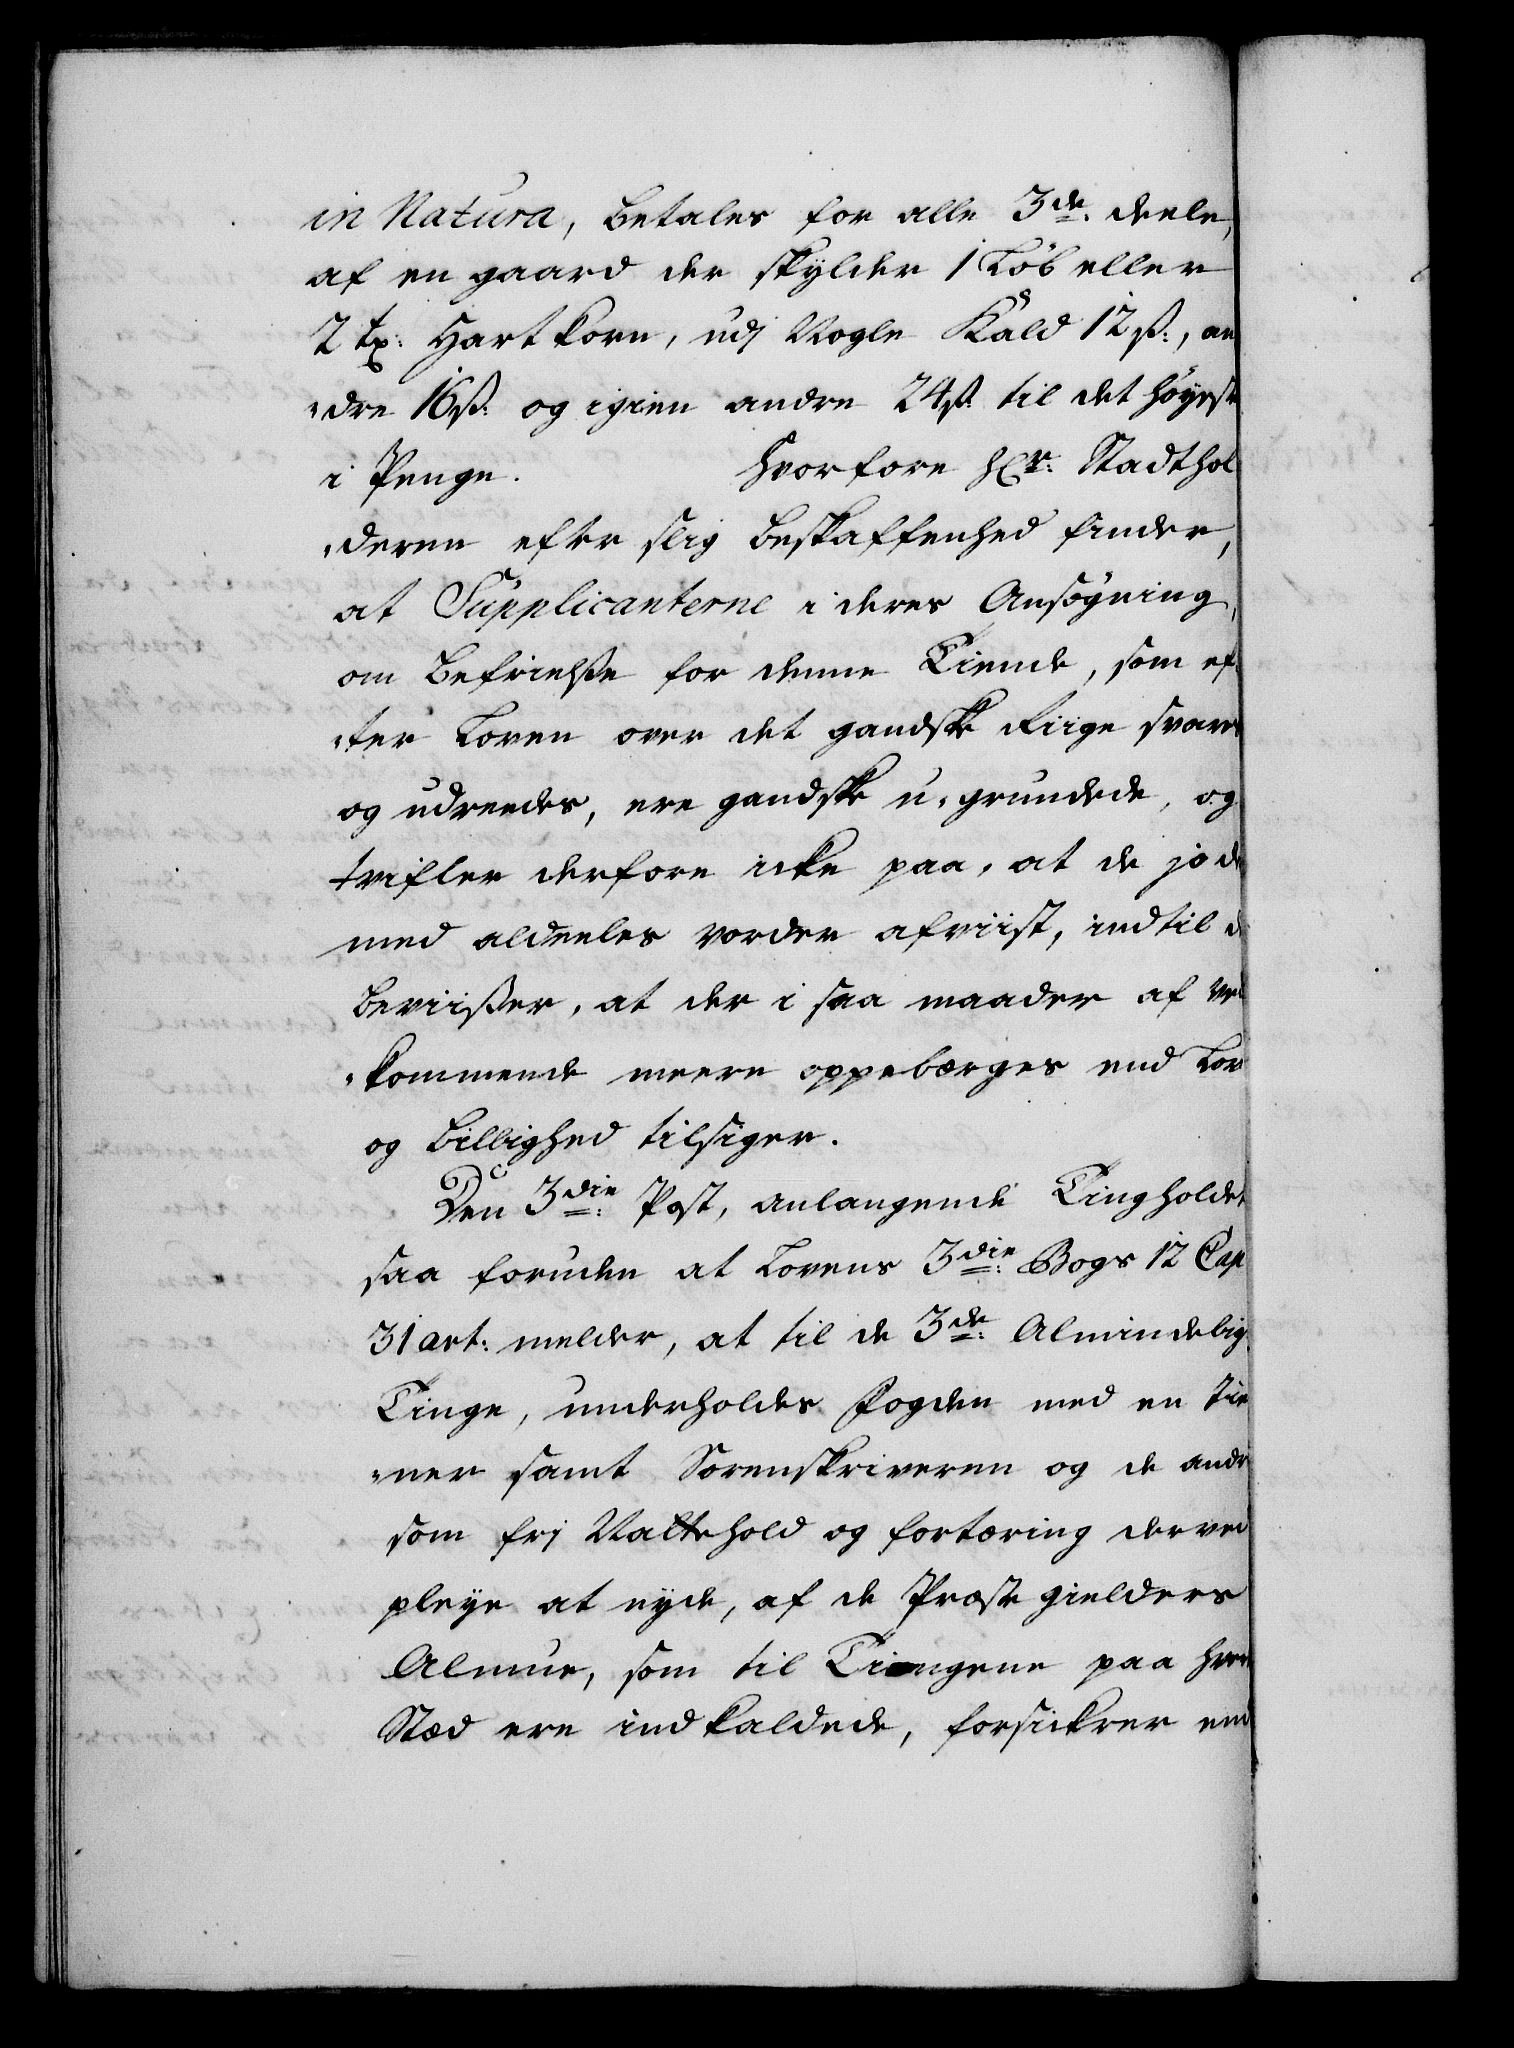 in Natura, betales for alle 3de deele,
af en gaard der skylder 1 Løb eller
2 tr: Hartkorn, udj Nogle Kald 12 ß:, an
„dre 16 ß: og igien andre 24 ß. til det høyeste
i Penge. Hvorfore Hr: Stadthol
„deren efter slig beskaffenhed finder,
at Supplicanterne i deres Ansøgning,
om befrielsse for denne Tiende, som ef„
„ter Loven over det gandske Riige svares
og udreedes, ere gandske u-grundede, og
tvifler derfore icke paa, at de jo der
med aldeeles vorder afviist, indtil de
beviisser, at der i saa maader af Ved
„kommende meere oppebærges end Lov
og billighed tilsiger.
Den 3die Post, anlangende Tingholdet
saa foruden at Lovens 3die Bogs 12 Cap
31 art: melder, at til de 3de Almindelig
Tinge, underholdes Fogden med en Tie
„ner samt Sorenskriveren og de andre
som frj Nattehold og fortæring derved
pleye at nyde, af de Præstegielders
Almue, som til Tingene paa hvert
Stæd ere indkaldede, forsickrer end